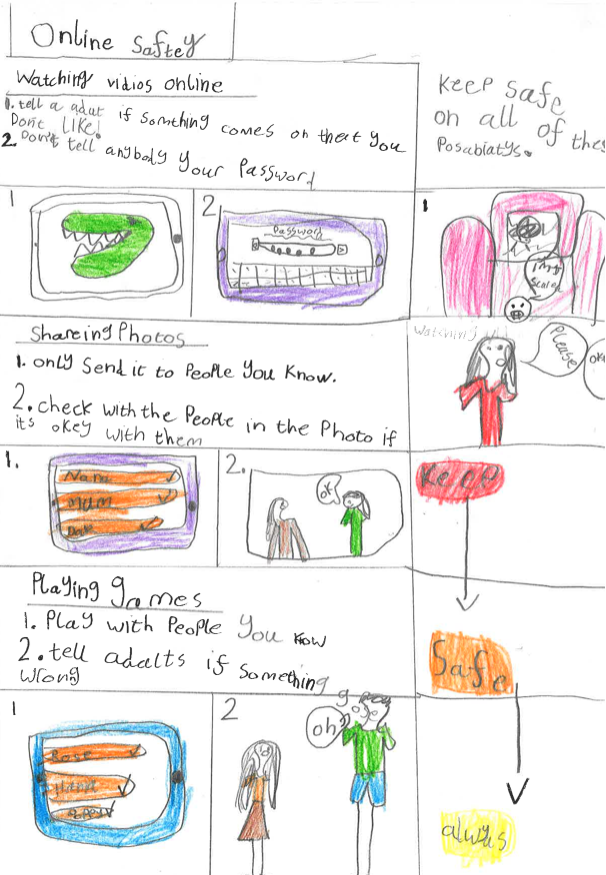 Online Saftey
Watching vidios online
1. tell a adut if somthing comes on that you
Dont like!
2. Don't tell anybody your Password
Keep safe
on all of thes
Posabiatys.
1
2
Password
1
I my
scared
Shareing Photos
1. only Send it to People You know.
2. check with the People in the Photo if
its okey with them
Watching
Please
ok
1.
Nana
mum
Dad
2.
ok
Keep
Playing games
1. Play with People you know
2. tell adalts if something
wrong
Safe
1
Rose
2
oh
always